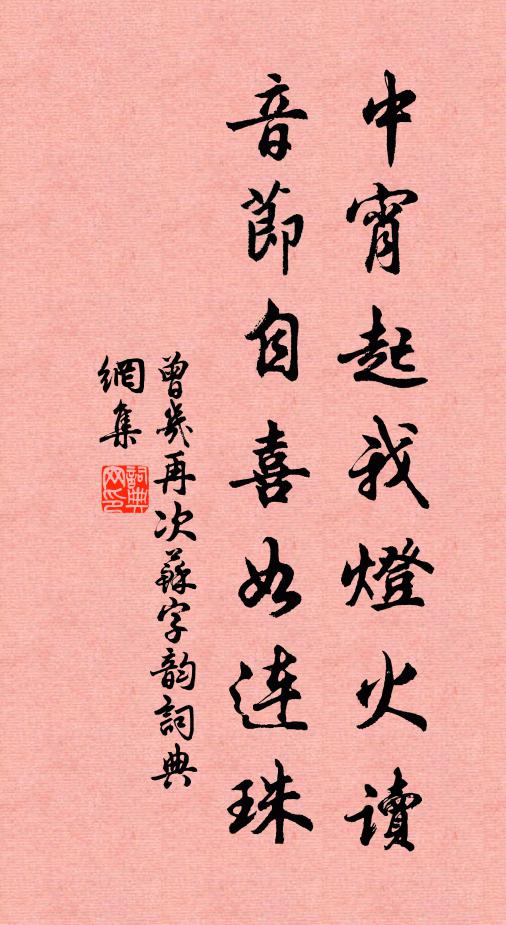 中宵起我燈火讀
音節自喜如連珠
曾幾再次蘇字韵詞典
網集
詞典網印